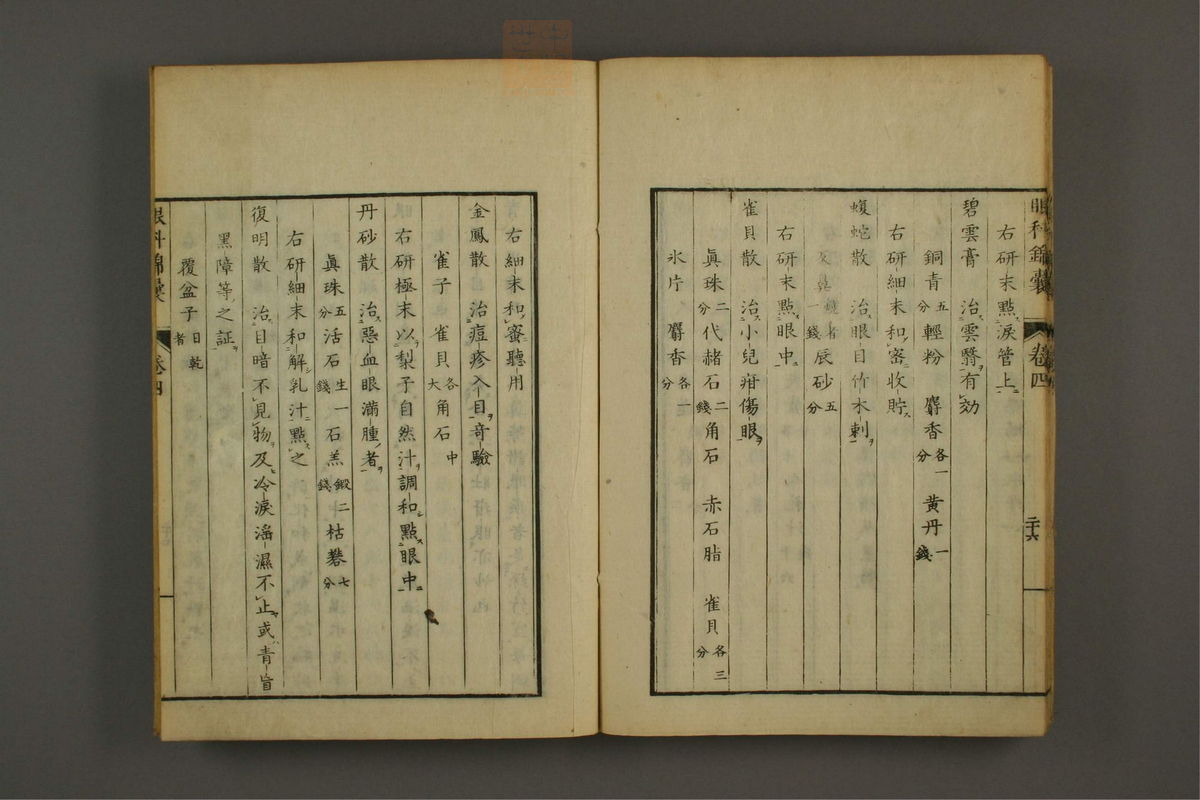 眼科錦囊 卷四 二十六
右研末點淚管上
碧雲膏 治雲翳有効
銅青五分輕粉 麝香各一分 黄丹一錢
右研細末和密收貯
蝮蛇散 治眼目竹木刺
者一錢辰砂五分
右研末點眼中
雀貝散 治小兒疳傷眼
眞珠二分代赭石二錢角石 赤石脂 雀貝各三分
氷片 麝香各一分
右細末和蜜聽用
金鳳散 治痘疹入目奇驗
雀子 雀貝各大角石中
右研極末以梨子自然汁調和點眼中
丹砂散 治惡血眼滿腫者
眞珠五分活石生一錢石羔煅二錢枯礬七分
右研細末和解乳汁點之
復明散 治目暗不見物及冷淚滛濕不止或青盲
黑障等之証
覆盆子日乾者
眼科錦囊 卷四